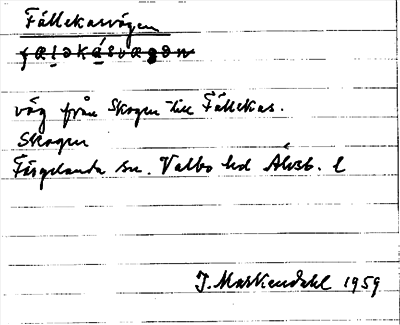 Fällekasvägen
väg från Skogen till Fällekas.
Skogen
Färgelanda sn. Valbo hd Älvsb. l
J. Markendahl 1959